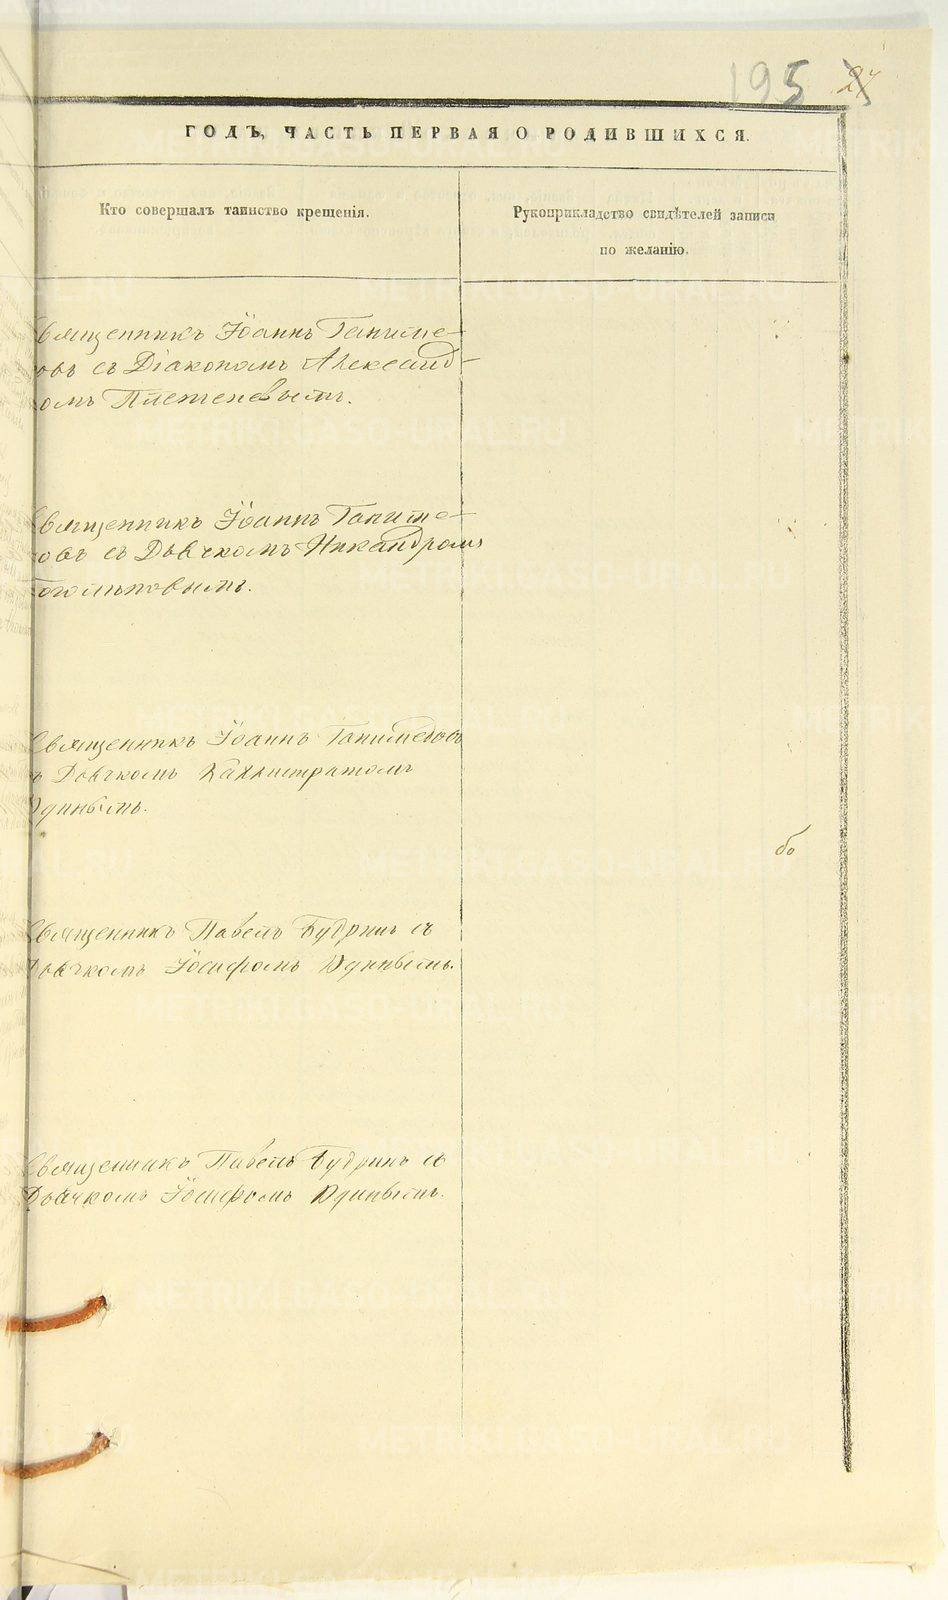 195 24
ГОДЪ, ЧАСТЬ ПЕРВАЯ О РОДИВШИХСЯ.
Кто совершалъ таинство крещенія.
Рукоприкладство свидѣтелей записи
по желанію.
Священникъ Іоаннъ Ганиме-
довъ съ Діакономъ Александ-
омъ Плетеневымъ.
Священникъ Іоаннъ Ганиме-
довъ съ Дьячкомъ Никандромъ
Священникъ Іоаннъ Ганимедовъ
съ Дьячкомъ Каллистратомъ
Юдинымъ.
бо
Священникъ Павелъ Будринъ съ
Дьячкомъ Іосифомъ Юдинымъ.
Священникъ Павелъ Будринъ съ
Дьячкомъ Іосифомъ Юдинымъ.
METRIKI.GASO-URAL.RU